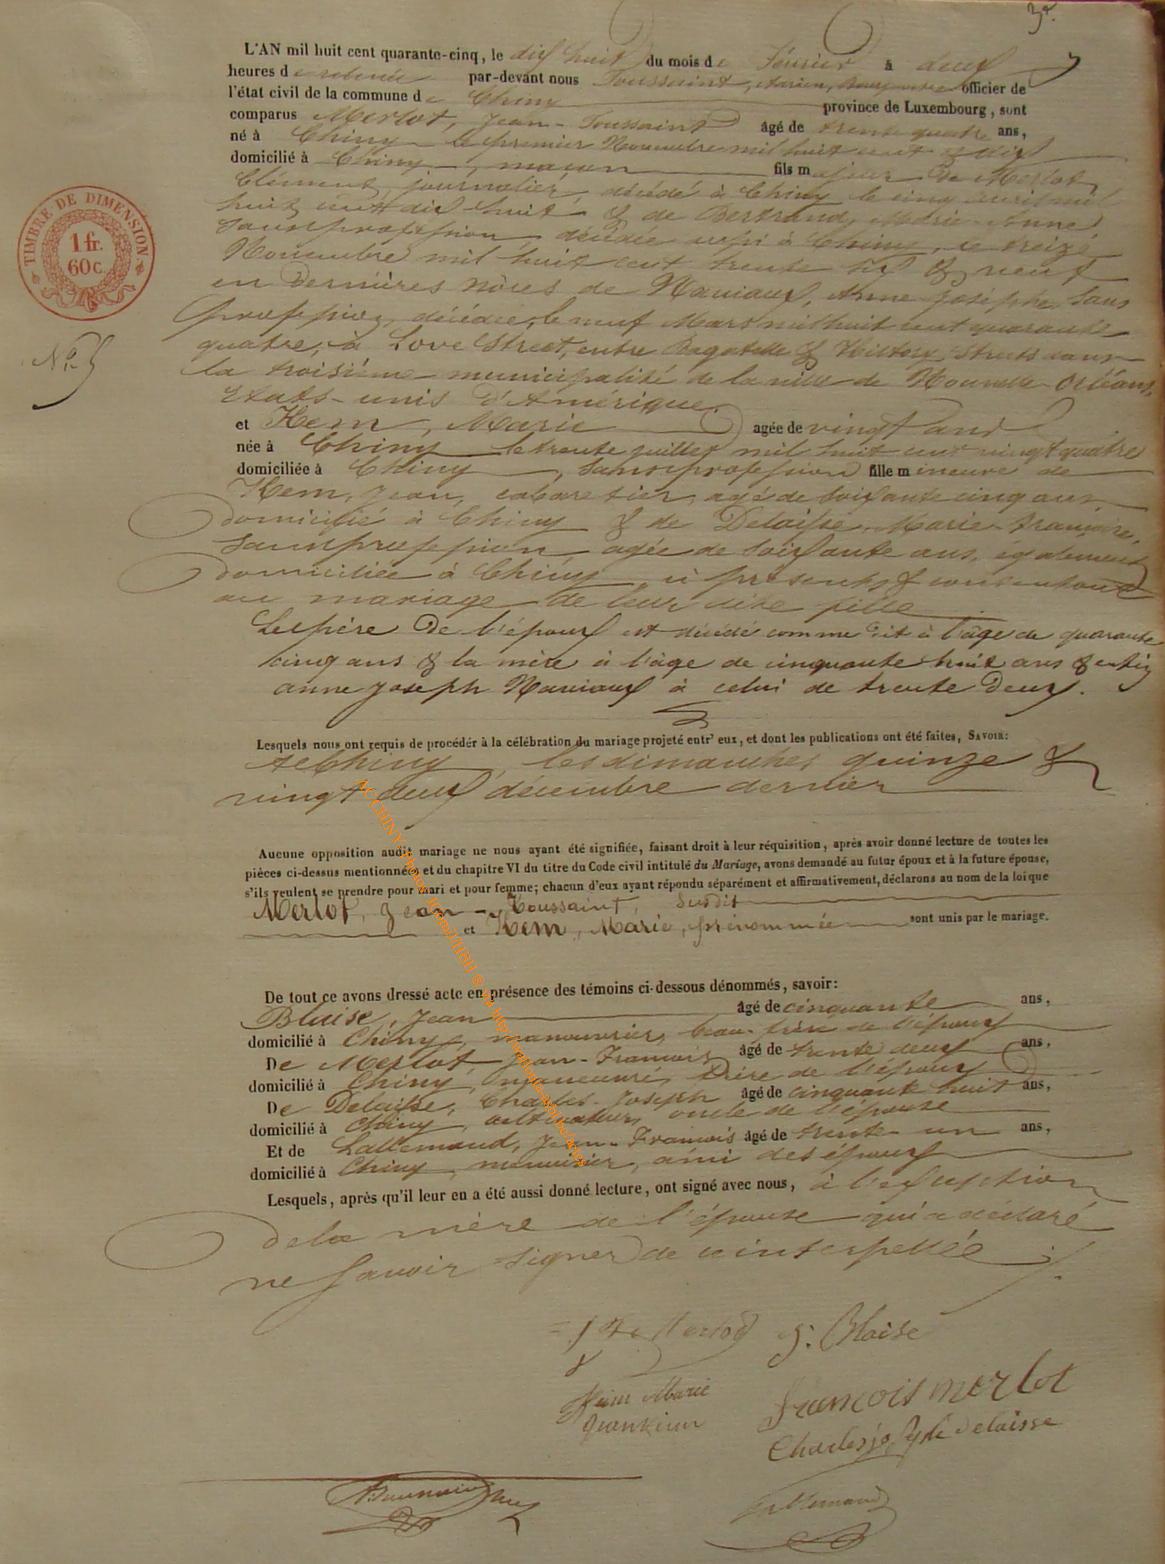 3e.
L'AN mil huit cent quarante-cinq, le dix huit du mois de Février à deux
heures de relevée par-devant nous Toussaint, Adrien, Bourgmestre officier de
l'état civil de la commune de Chiny province de Luxembourg, sont
comparus Merlot, Jean-Toussaint âgé de trente quatre ans,
né à Chiny le premier Novembre mil huit cent & dix
domicilié à Chiny, maçon fils majeur de Merlot,
Clément, journalier, décédé à Chiny le cinq avril mil
huit cent dix-huit & de Bertrand, Marie-Anne
sans profession décédée aussi à Chiny, le treize
Novembre mil huit cent trente six & veuf
en dernières nôces de Naviaux, Anne Josèphe, sans
profession, décédée, le neuf Mars mil huit cent quarante
quatre, à Love Street, entre Bagatelle & History Streets dans
la troisième municipalité de la ville de Nouvelle-Orléans,
Etats-unis d'Amérique.
et Hem, Marie agée de vingt ans
née à Chiny le trente juillet mil huit cent vingt quatre
domiciliée à Chiny, sans profession fille mineure de
Hem, Jean, cabaretier, agé de soixante cinq ans,
domicilié à Chiny & de Delaisse, Marie-Françoise,
sans profession agée de soixante ans, également
domiciliée à Chiny, ici présents & consentans
au mariage de leur dite fille
Le père de l'époux est décédé comme dit à l'âge de quarante
cinq ans & la mère à l'âge de cinquante huit ans & enfin
anne Joseph Naviaux à celui de trente deux.
Lesquels nous ont requis de procéder à la célébration du mariage projeté entr' eux, et dont les publications ont été faites, SAVOIR:
A Chiny, les dimanches quinze &
vingt deux décembre dernier
Aucune opposition audit mariage ne nous ayant été signifiée, faisant droit à leur réquisition, après avoir donné lecture de toutes les
pièces ci-dessus mentionnées et du chapitre VI du titre du Code civil intitulé du Mariage, avons demandé au futur époux et à la future épouse,
s'ils veulent se prendre pour mari et pour femme; chacun d'eux ayant répondu séparément et affirmativement, déclarons au nom de la loi que
Merlot, Jean-Toussaint, susdit
et Hem, Marie, prénommée sont unis par le mariage.
De tout ce avons dressé acte en présence des témoins ci-dessous dénommés, savoir:
Blaise, Jean âgé de cinquante ans,
domicilié à Chiny, manouvrier, beau-frère de l'époux
De Merlot Jean-François âgé de trente deux ans,
domicilié à Chiny, manouvrier, frère de l'époux
De Delaisse, Charles-Joseph âgé de cinquante huit ans,
domicilié à Chiny, cultivateur, oncle de l'épouse
Et de Lallemand, Jean-François âgé de trente un ans,
domicilié à Chiny, menuisier, ami des époux
Lesquels, après qu'il leur en a été aussi donné lecture, ont signé avec nous, à l'exception
de la mère de l'épouse qui a déclaré
ne savoir signer de ce interpellée
Merlot J: Blaise
Hem Marie François merlot
Jean Hem Charles joseph Delaisse
Lallemand
TIMBRE DE DIMENSION
1 fr.
60 c.
No. 5